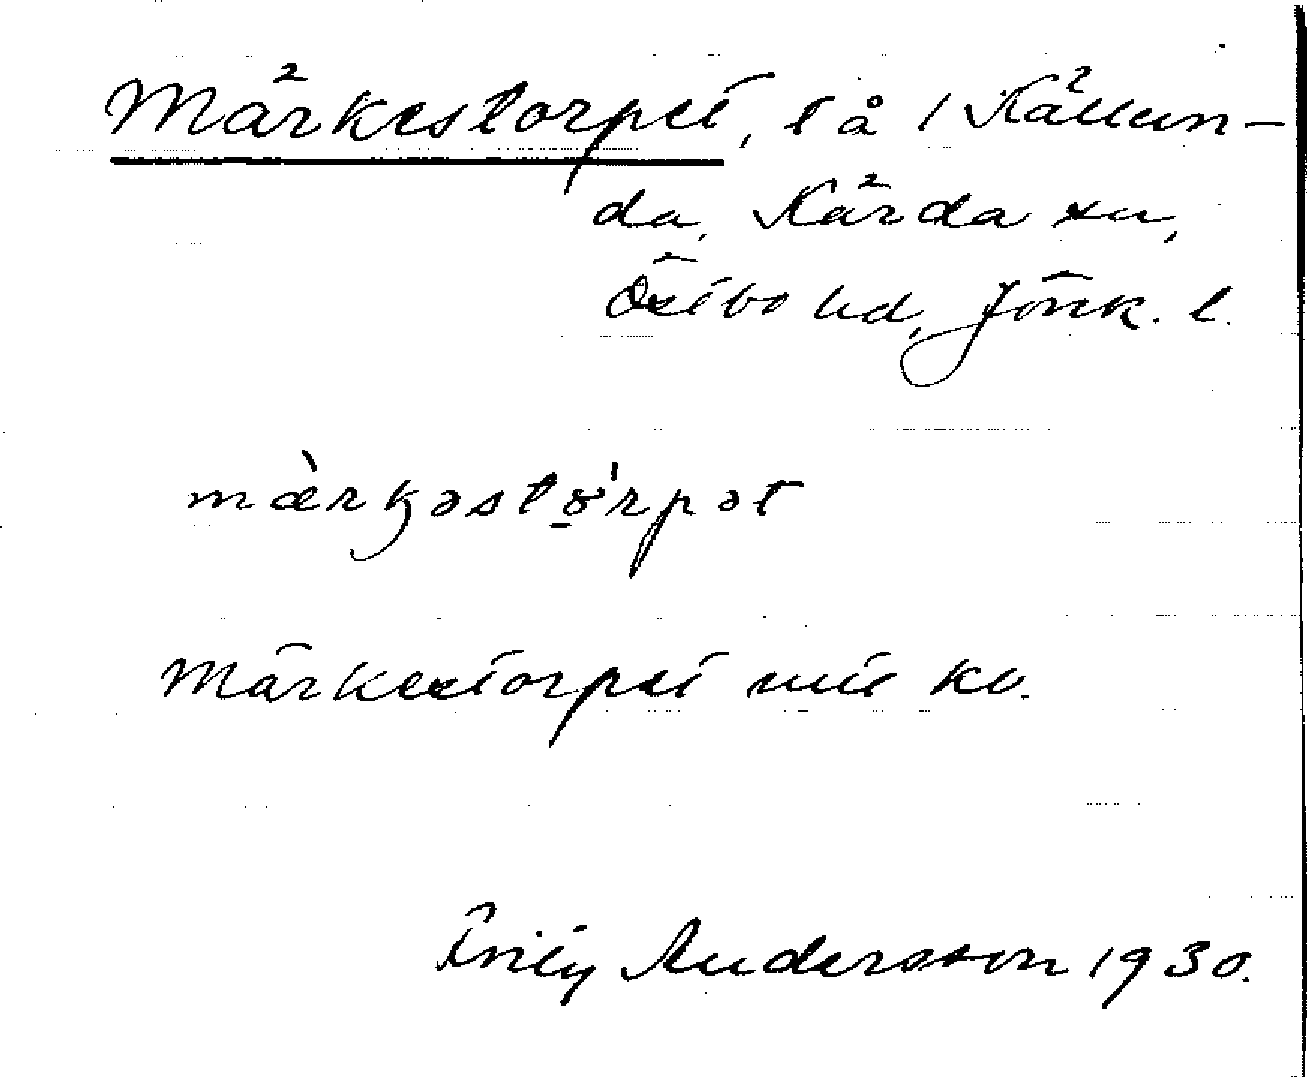 Märkestorpet, t å 1 Källun-
da, Kärda sn,
Östbo hd, Jönk. l.
mæ̀rkəstɷ̠'rpət
Märkestorpet utit ko.
Emily Andersson 1930.